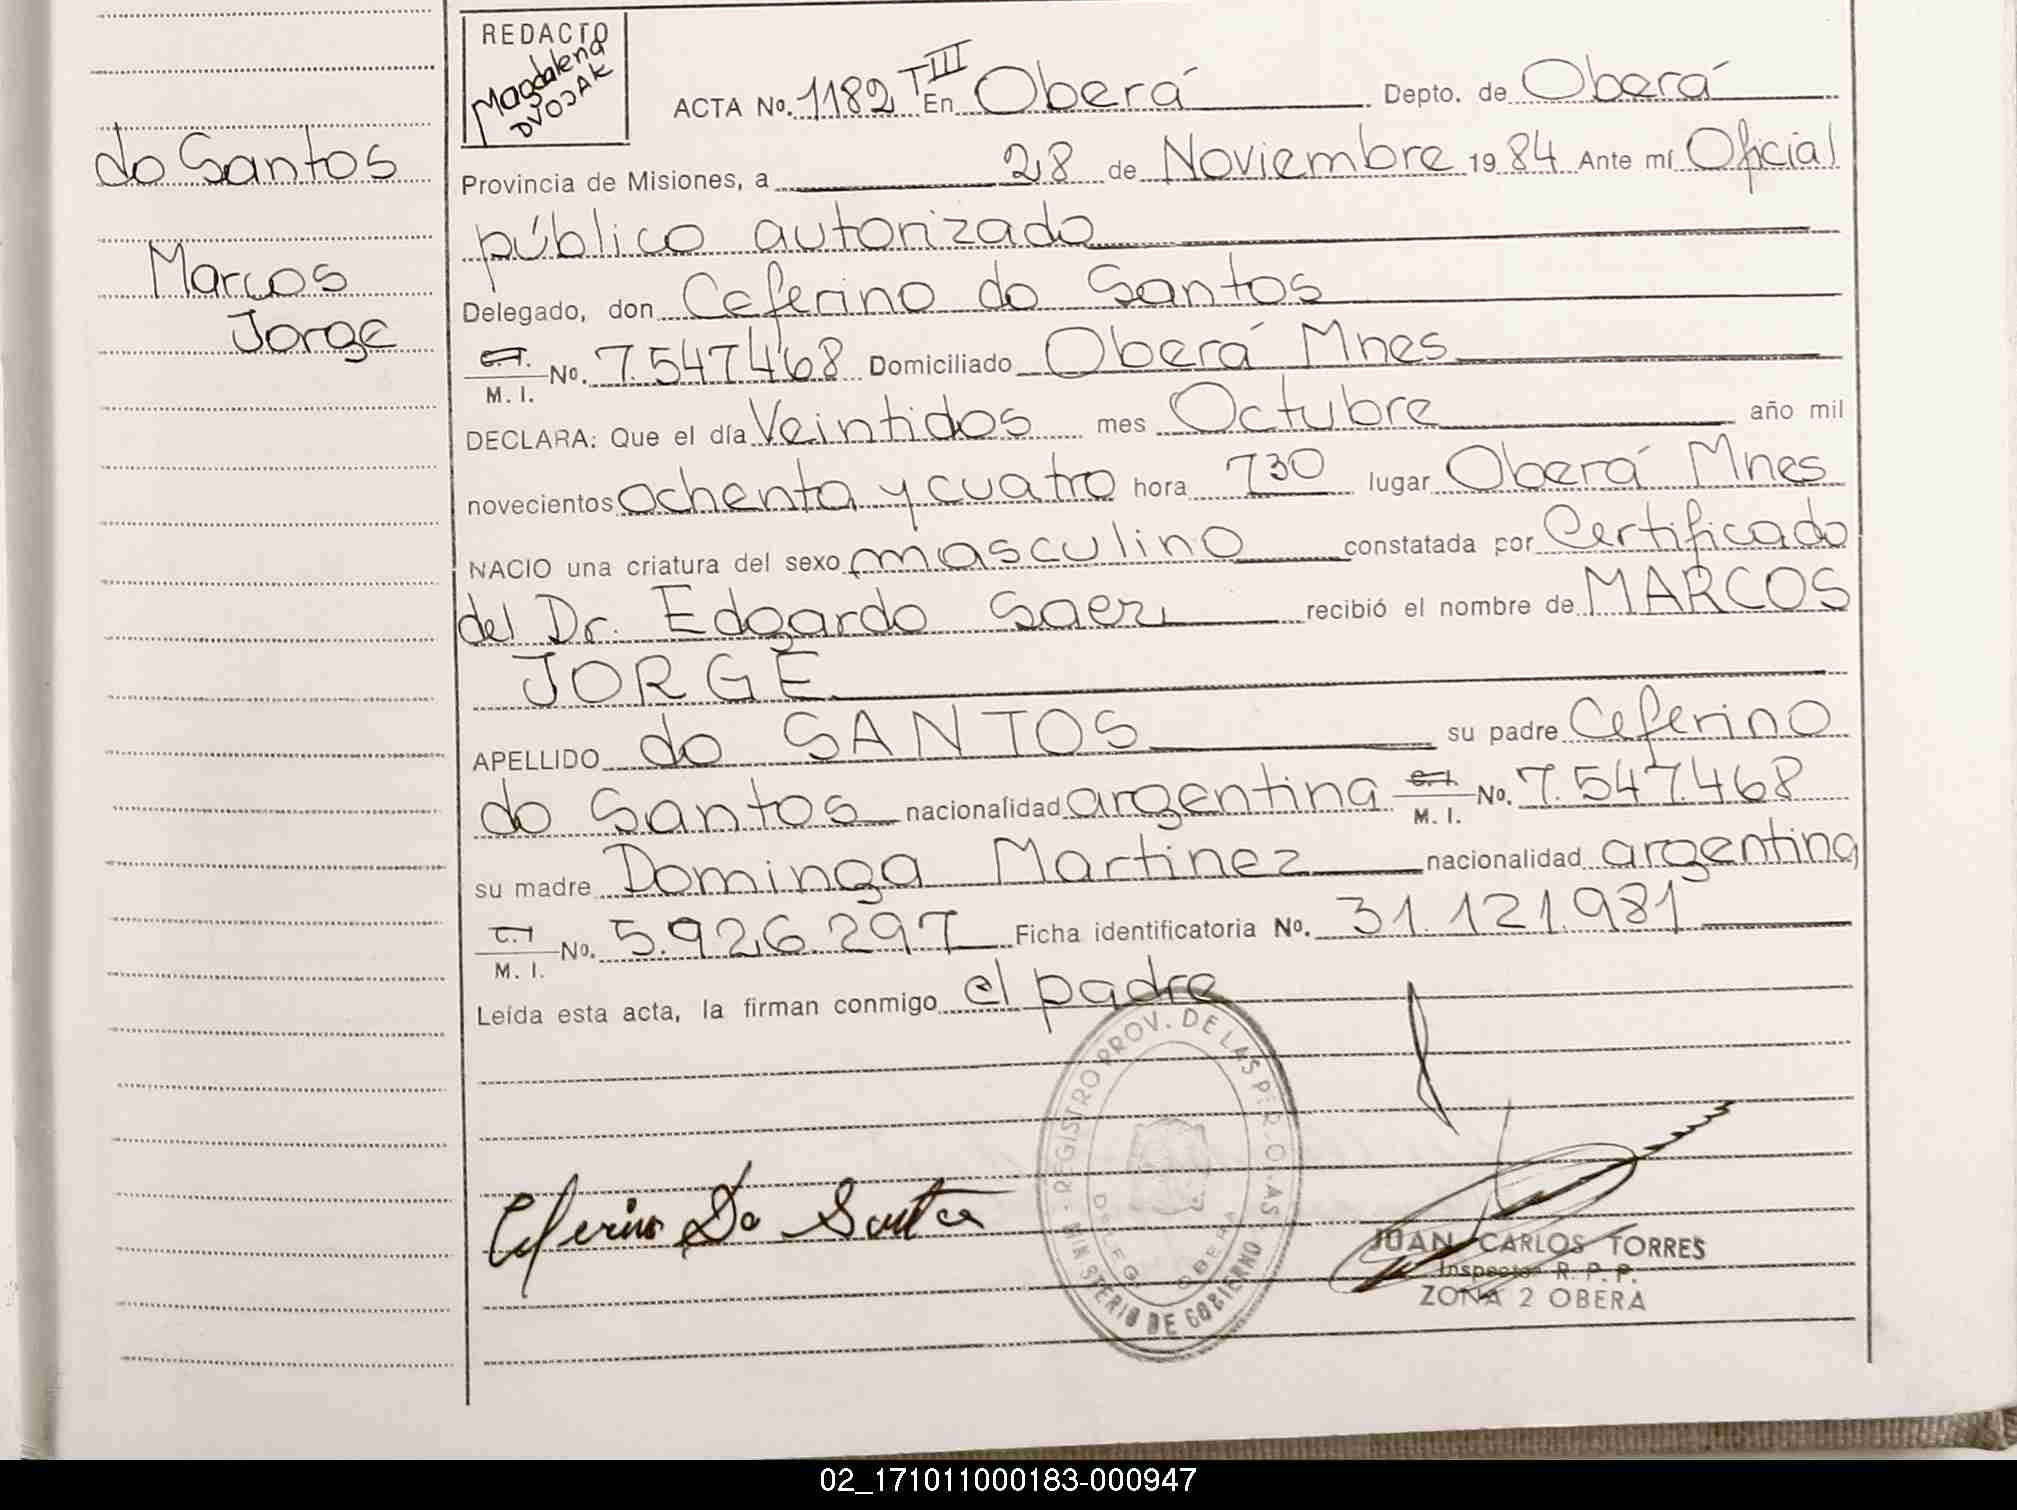 REDACTO
Magdalena
DVOJAK
do Santos
Marcos
Jorge
ACTA No. 1182 T III En Oberá Depto. de Oberá
Provincia de Misiones, a 28 de Noviembre 1984 Ante mí Oficial
público autorizado
Delegado, don Ceferino do Santos
C.I. M. I. No. 7.547.468 Domiciliado Oberá Mnes
DECLARA: Que el día Veintidos mes Octubre año mil
novecientos ochenta y cuatro hora 730 lugar Oberá Mnes
NACIO una criatura del sexo masculino constatada por Certificado
del Dr. Edgardo Saez recibió el nombre de MARCOS
JORGE
APELLIDO do SANTOS su padre Ceferino
do Santos nacionalidad argentina C.I. M. I. No. 7.547.468
su madre Dominga Martinez nacionalidad argentina
C.I. M. I. No. 5.926.297 Ficha identificatoria No. 31.121.981
Leída esta acta, la firman conmigo el padre
REGISTRO PROV. DE LAS PER.O.AS - MINISTERIO DE GOBIERNO -
DELEG. OBERA
Ceferino Do Santos
JUAN CARLOS TORRES
Inspector R. P. P.
ZONA 2 OBERA
02_171011000183-000947